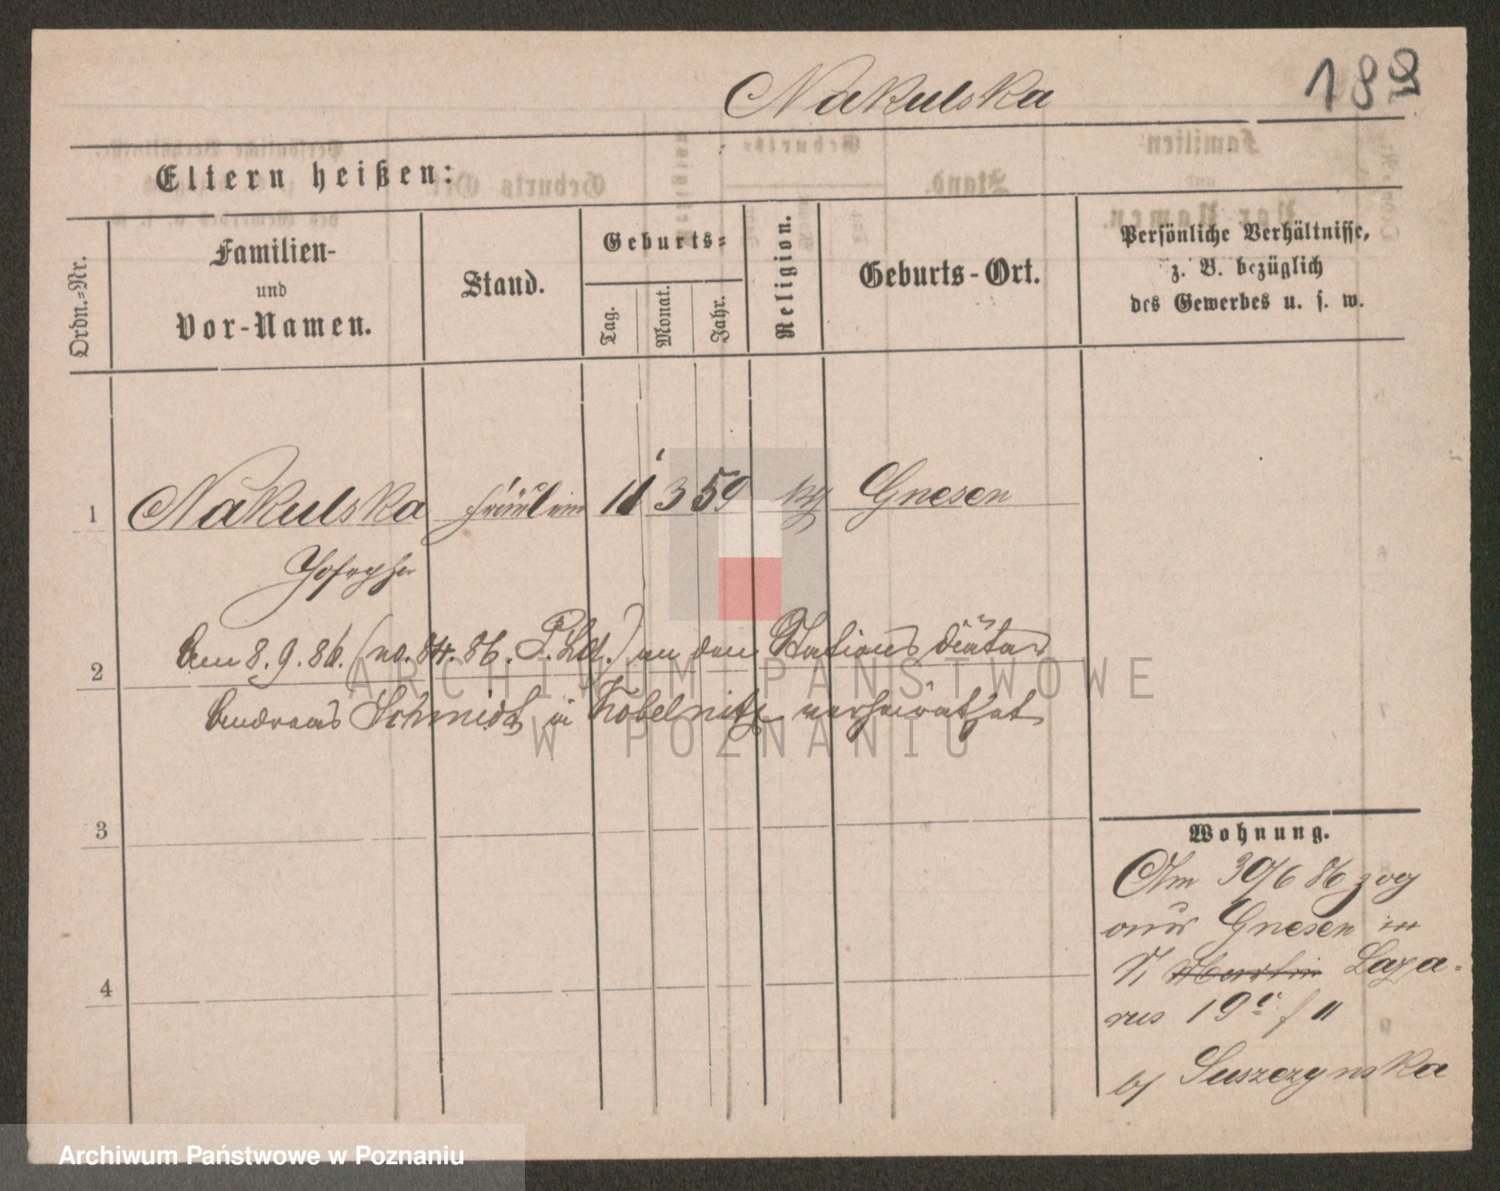 Nakulska
188
Eltern heißen:
Ordn.-Nr.
Familien-
und
Vor-Namen.
Stand.
Geburts-
Tag.
Monat.
Jahr.
Religion.
Geburts-Ort.
Persönliche Verhältnisse,
z. B. bezüglich
des Gewerbes u. s. w.
1 Nakulska Fräulein 11 3 59 Gnesen
Josepha
2 Am 8.9.86. (no. 84. 86. P. Ltt.) an den Stations diätar
Andreas Schmidt in Kobelnitz verheirathet
3
4
Wohnung.
Am 30/6 86 zog
aus Gnesen in
St Martin Laza-
rus 19
b/ Suszczynska
ARCHIWUM PAŃSTWOWE
W POZNANIU
Archiwum Państwowe w Poznaniu